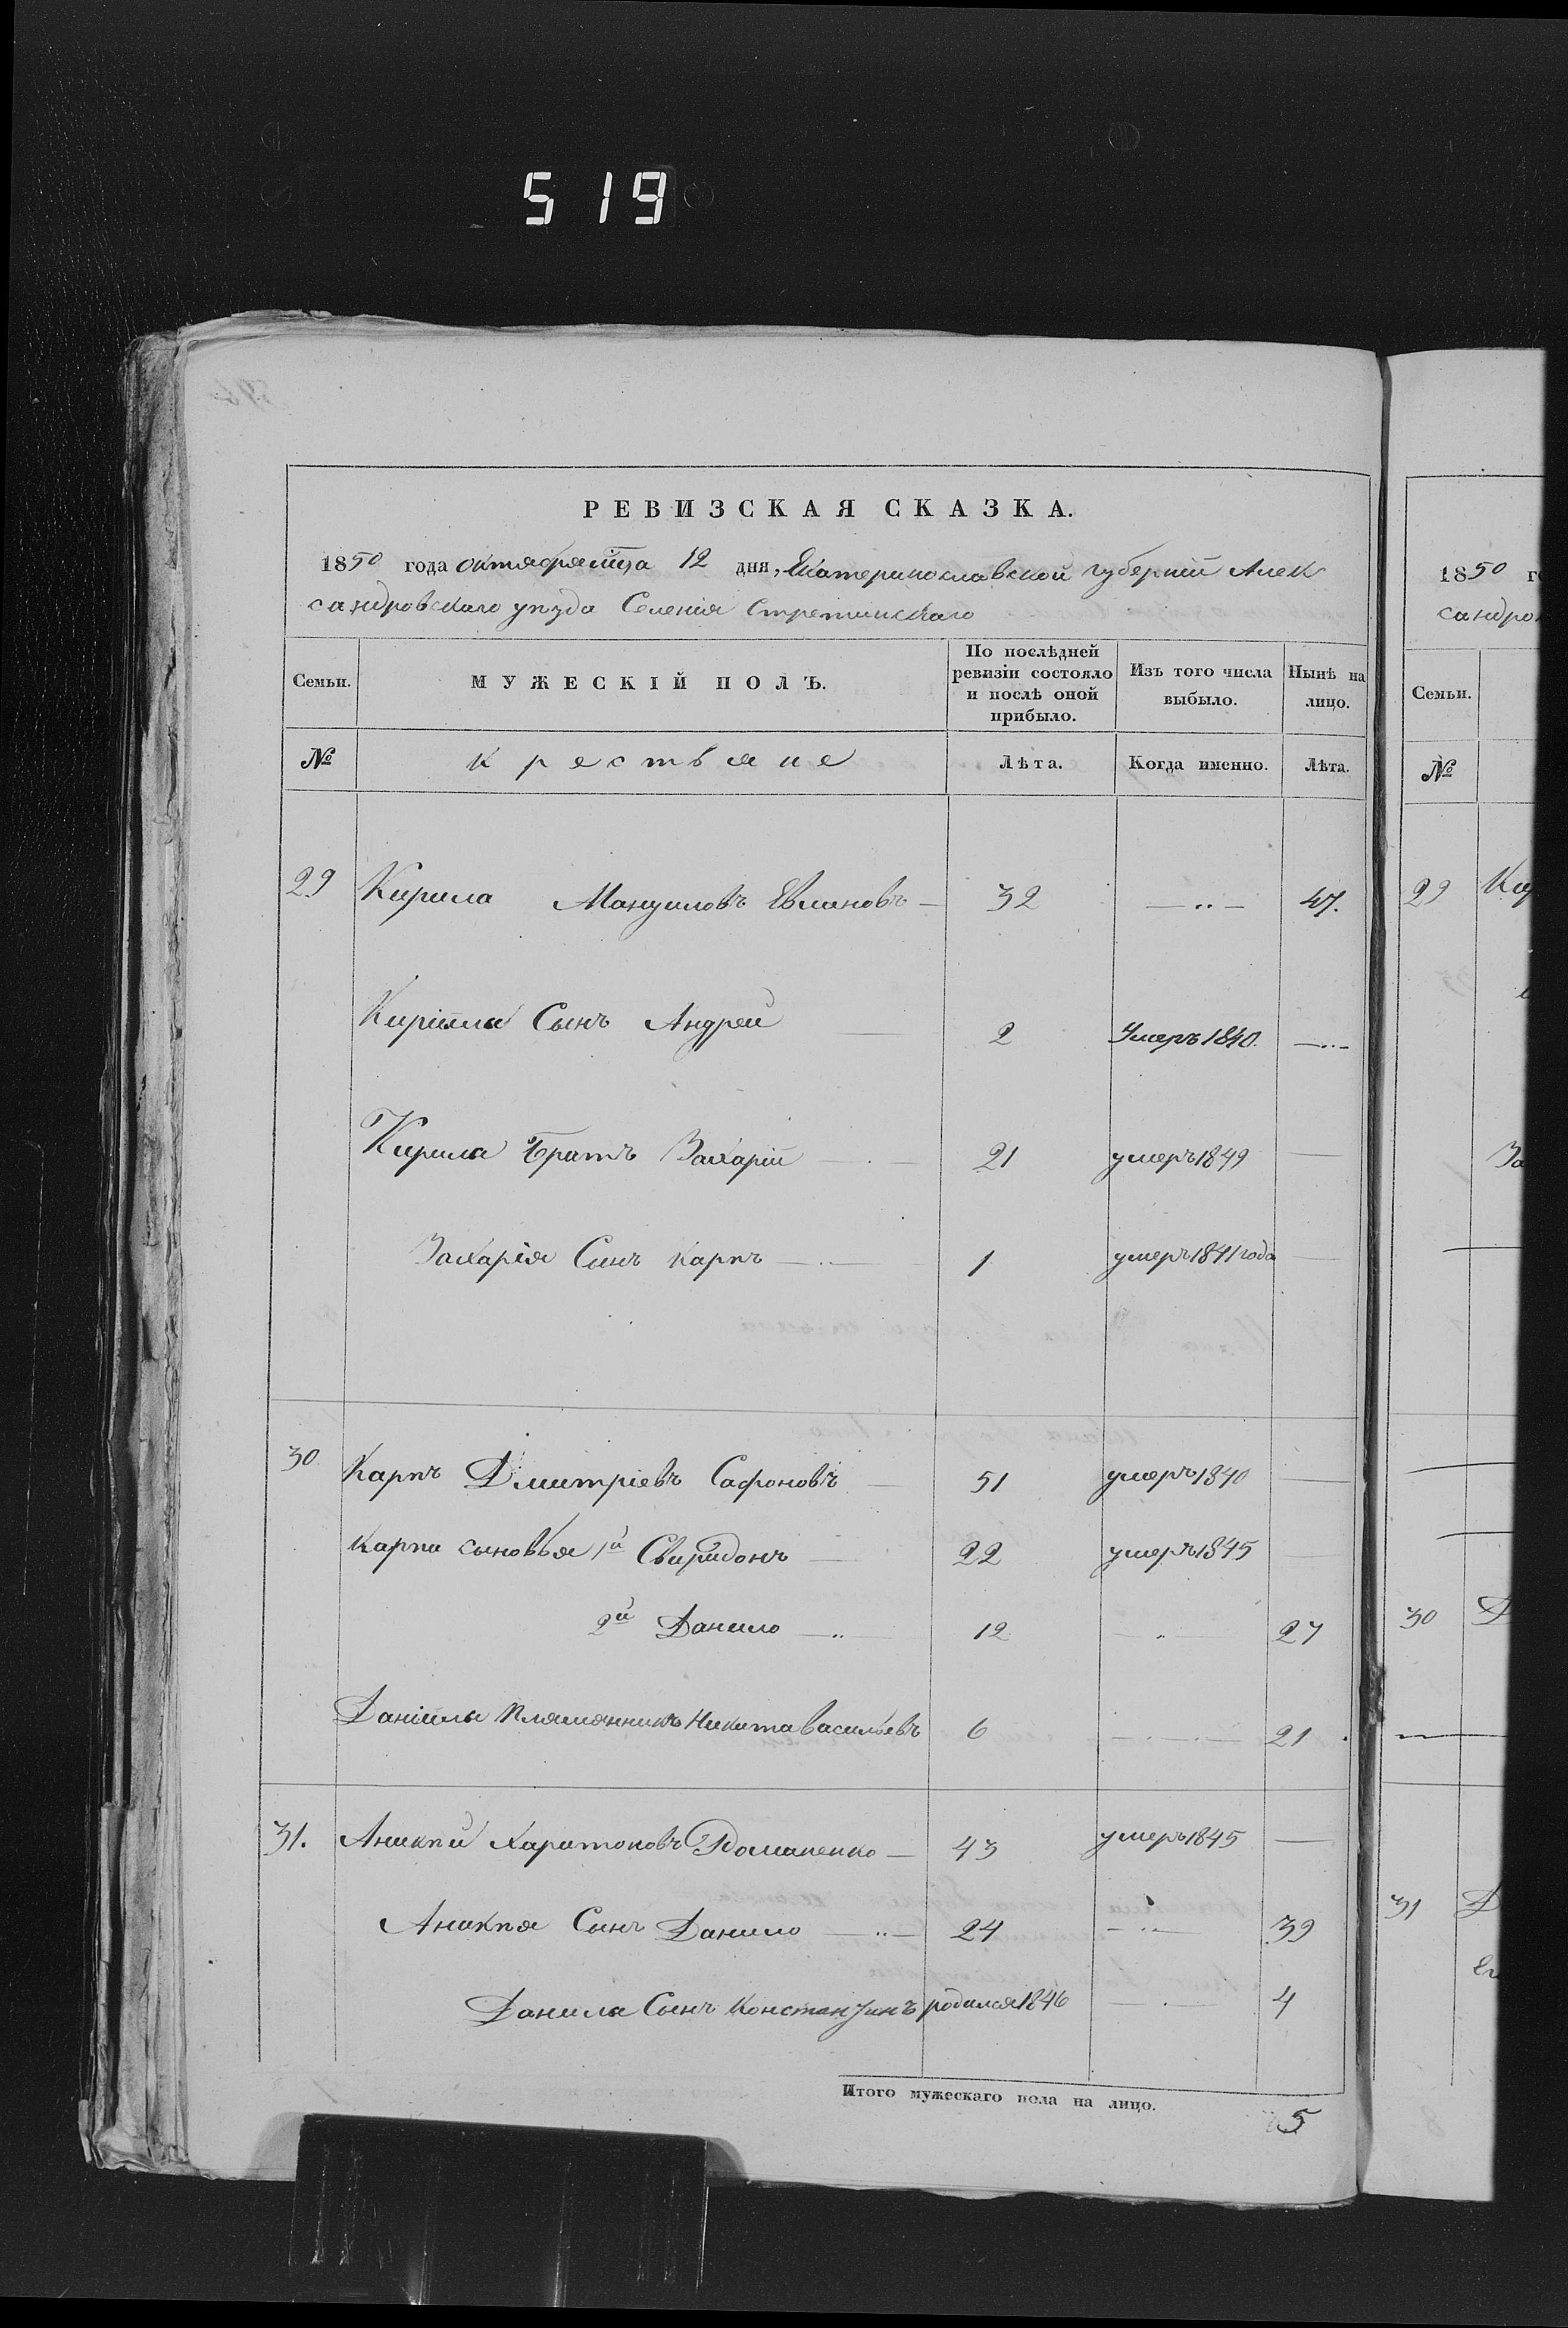 519
РЕВИЗСКАЯ СКАЗКА.
1850 года октября мца 12 дня, Екатеринославской губерніи Алек
сандровскаго уѣзда Селенія Стретинскаго
Семьи.
МУЖЕСКІЙ ПОЛЪ.
По послѣдней ревизіи состояло и послѣ оной прибыло.
Изъ того числа выбыло.
Нынѣ на лицо.
№ крестьяне Лѣта. Когда именно. Лѣта.
29 Кирила Мануиловъ Евлановъ — 32 — „ — 47.
Кирилы Сынъ Андрей 2 Умеръ 1840. — „ —
Кирила братъ Захарій — 21 умеръ 1849 —
Захарія Синъ Карпъ — 1 умеръ 1841 года —
30 Карпъ Дмитріевъ Сафоновъ — 51 умеръ 1840 —
Карпа сыновья 1й Свиридонъ — 22 умеръ 1845 —
2й Данило — „ — 12 „ 27
Данiилы племянникъ Никита Васильевъ 6 — 21
31. Аникій Харитоновъ Романенко — 43 умеръ 1845 —
Сынъ Данило — „ — 24 — „ — 39
Данила Сынъ Константинъ родился 1846 — 4
Итого мужескаго пола на лицо.
5
1850 г
сандров
Семьи.
№
29 Кир
За
30 Д
31 Д